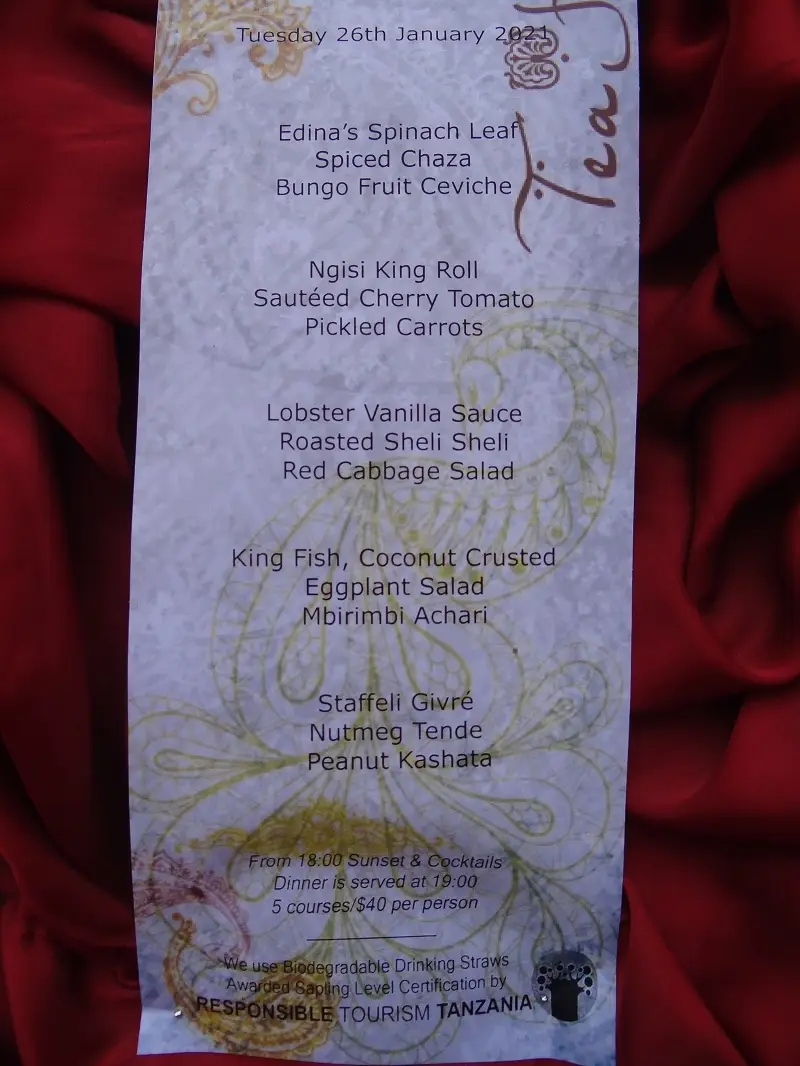 Tuesday 26th January 2021
Tea
Edina's Spinach Leaf
Spiced Chaza
Bungo Fruit Ceviche
Ngisi King Roll
Sautéed Cherry Tomato
Pickled Carrots
Lobster Vanilla Sauce
Roasted Sheli Sheli
Red Cabbage Salad
King Fish, Coconut Crusted
Eggplant Salad
Mbirimbi Achari
Staffeli Givré
Nutmeg Tende
Peanut Kashata
From 18:00 Sunset & Cocktails
Dinner is served at 19:00
5 courses/$40 per person
We use Biodegradable Drinking Straws
Awarded Sapling Level Certification by
RESPONSIBLE TOURISM TANZANIA